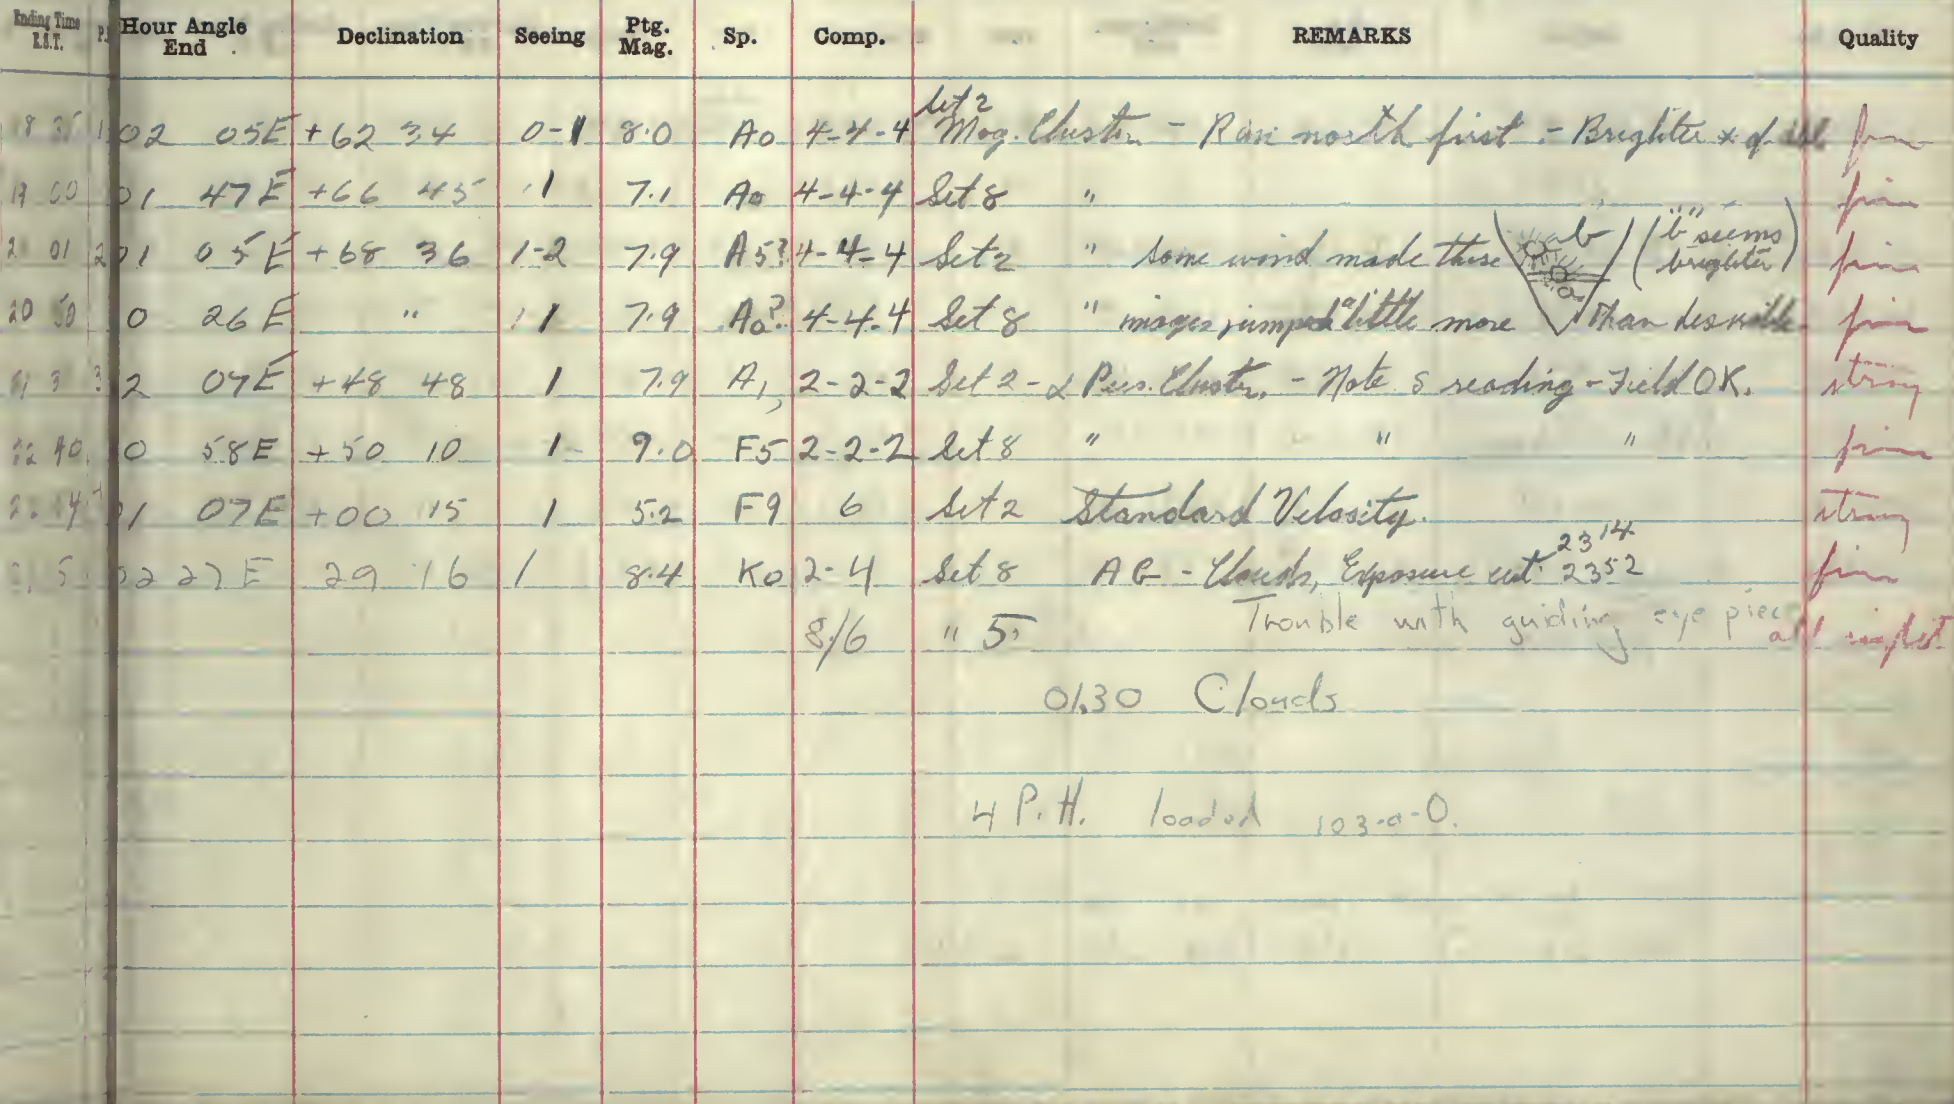 Ending Time E.S.T. Hour Angle End Declination Seeing Ptg. Mag. Sp. Comp. REMARKS Quality
Set 2
02 05E +62 34 0-1 8.0 A0 4-4-4 Mag. Cluster - Ran north first - Brighter * of fine
19 00 01 47E +66 45 1 7.1 A0 4-4-4 Set 8 " fine
01 01 05E +68 36 1-2 7.9 A5? 4-4-4 Set 2 " Some wind made these ab ("b" seems brighter) fine
20 50 0 26E " 1 7.9 A0? 4-4-4 Set 8 " images jumped a little more a than desirable fine
2 07E +48 48 1 7.9 A1, 2-2-2 Set 2 - α Pers. Cluster. - Note δ reading - Field OK. strong
22 40 0 58E +50 10 1 9.0 F5 2-2-2 Set 8 " " " fine
01 07E +00 15 1 5.2 F9 6 Set 2 Standard Velosity. strong
2314
02 27E 29 16 1 8.4 K0 2-4 Set 8 AG - Clouds, Exposure cut 2352 fine
8/6 " 5 Trouble with guiding eye piece
0130 Clouds
4 P.H. loaded 103-a-O.